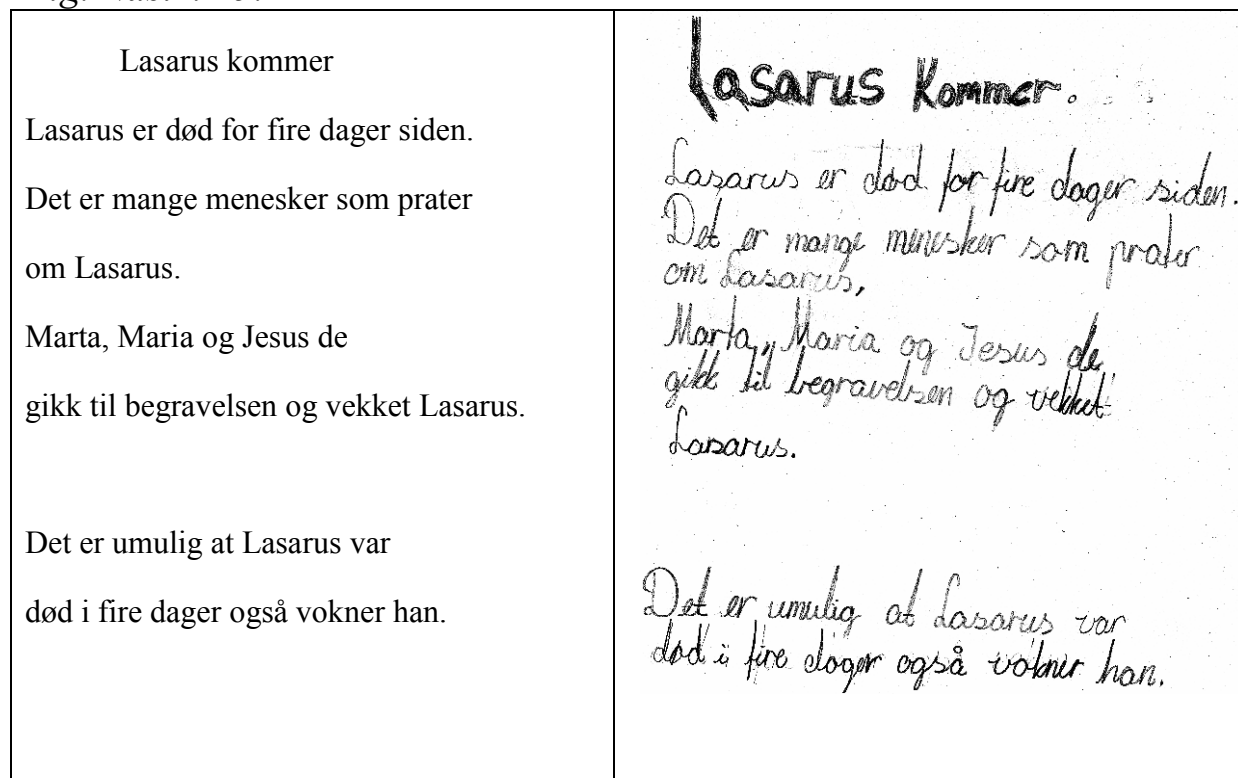 Lasarus kommer
Lasarus er død for fire dager siden.
Det er mange menesker som prater
om Lasarus.
Marta, Maria og Jesus de
gikk til begravelsen og vekket Lasarus.
Det er umulig at Lasarus var
død i fire dager også vokner han.
Lasarus Kommer.
Lasarus er død for fire dager siden.
Det er mange menesker som prater
om Lasarus,
Marta, Maria og Jesus de
gikk til begravelsen og vekket
Lasarus.
Det er umulig at Lasarus var
død i fire dager også vokner han.